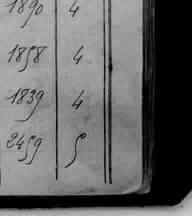 1890 4
1858 4
1839 4
2459 5